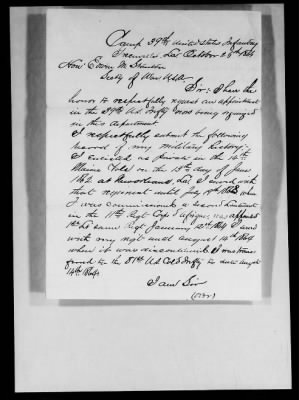 Camp 39th United States Infantry
Greenville La October 29th 1866
Hon Edwin M. Stanton
Secty of War U.S.A.
Sir: I have the
honor to respectfully request an appointment
in the 39th U.S. Infty now being organized
in this department.
I respectfully submit the following
record of my military history.
I enlisted as private in the 14th
Maine Vols on the 13th day of June
1862 at I served with
that regiment until July 1863 when
I was commissioned a second Lieutenant
in the 11th Regt Corps d'Afrique, was appointed
1st Lt same Regt January I served
with my regt until August 14th 1864
when it was discontinued I was trans
ferred to the 81st U.S. Col'd Infty to date August
14th 1864
I am Sir
(over)